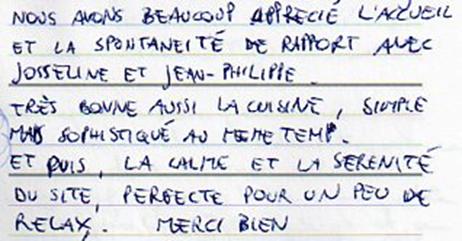 NOUS AVONS BEAUCOUP APPRECIÉ L'ACCUEIL
ET LA SPONTANEITÉ DE RAPPORT AVEC
JOSSELINE ET JEAN-PHILIPPE.
TRÈS BONNE AUSSI LA CUISINE, SIMPLE
MAIS SOPHISTIQUÉ AU MEME TEMP.
ET PUIS, LA CALME ET LA SERENITÉ
DU SITE, PERFECTE POUR UN PEU DE
RELAX. MERCI BIEN